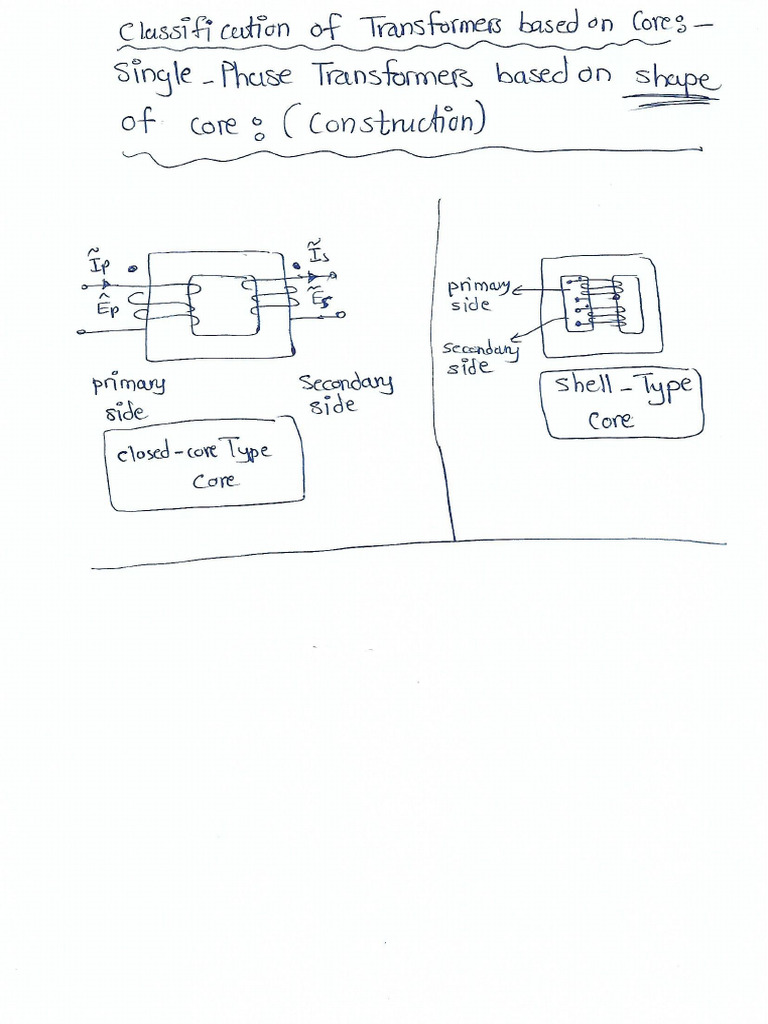 Classification of Transformers based on Core:-
Single-Phase Transformers based on shape
of core: (Construction)
Ĩp
Ẽp
Ĩs
Ẽs
primary
side
Secondary
side
closed-core Type
Core
primary
side
secondary
side
Shell-Type
Core